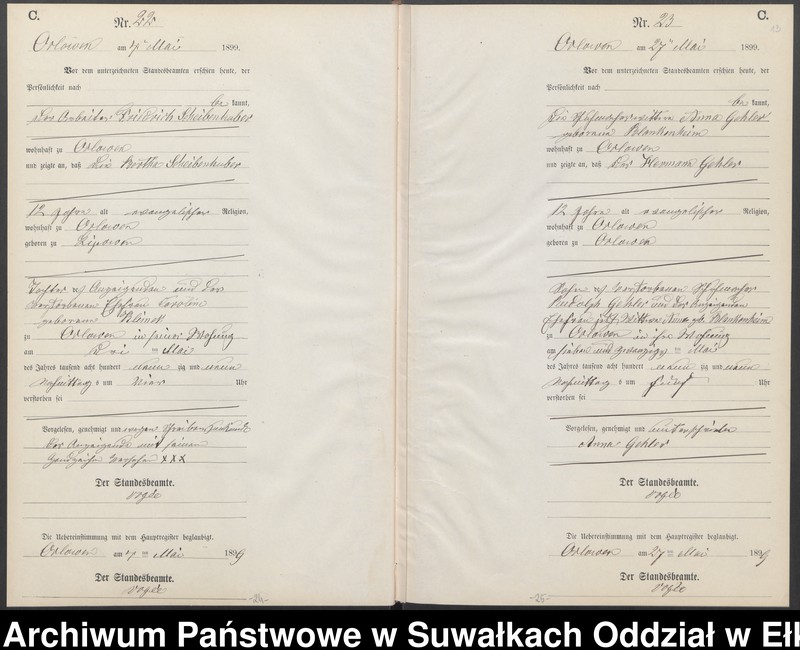 C.
Nr. 22
Orlowen am 4ten Mai 1899.
Vor dem unterzeichneten Standesbeamten erschien heute, der
Persönlichkeit nach
be kannt,
der Arbeiter Friedrich Scheibenhuber
wohnhaft zu Orlowen
und zeigte an, daß die Bertha Scheibenhuber
12 Jahre alt evangelischer Religion,
wohnhaft zu Orlowen
geboren zu Lipowen
Tochter des Anzeigenden und der
verstorbenen Ehefrau Caroline
geborenen
zu Orlowen in seiner Wohnung
am drei ten Mai
des Jahres tausend acht hundert neun zig und neun
Nachmittags um vier Uhr
verstorben sei
Vorgelesen, genehmigt und wegen Schreibensunkunde
der Anzeigende mit seinem
Handzeichen versehen XXX
Der Standesbeamte.
Vogel
Die Uebereinstimmung mit dem Hauptregister beglaubigt.
Orlowen am 4ten Mai 1899
Der Standesbeamte.
Vogel
-24-
C.
13
Nr. 23
Orlowen am 27ten Mai 1899.
Vor dem unterzeichneten Standesbeamten erschien heute, der
Persönlichkeit nach
be kannt,
die Anna Gehler
geborene Blankenheim
wohnhaft zu Orlowen
und zeigte an, daß der Hermann Gehler
12 Jahre alt evangelischer Religion,
wohnhaft zu Orlowen
geboren zu Orlowen
Sohn des verstorbenen
Rudolph Gehler und der Anzeigenden
Ehefrau jetzt Wittwe Anna geb. Blankenheim
zu Orlowen in ihrer Wohnung
am sieben und zwanzigsten Mai
des Jahres tausend acht hundert neun zig und neun
Nachmittags um fünf Uhr
verstorben sei
Vorgelesen, genehmigt und unterschrieben
Anna Gehler
Der Standesbeamte.
Vogel
Die Uebereinstimmung mit dem Hauptregister beglaubigt.
Orlowen am 27ten Mai 1899
Der Standesbeamte.
Vogel
-25-
Archiwum Państwowe w Suwałkach Oddział w Ełk